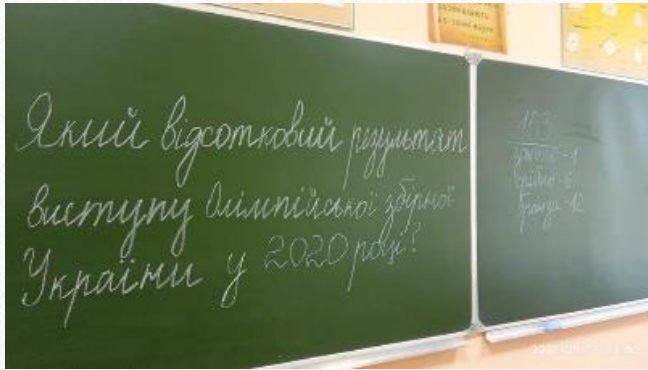 Який відсотковий результат
виступу Олімпійської збірної
України у 2020 році?
золото - 1
срібло - 6
бронза - 12